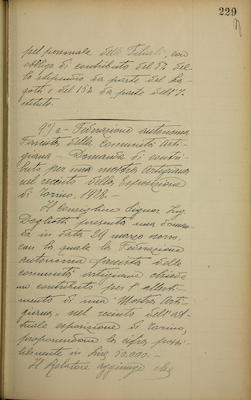 229
pel personale delle Filiali, con
obbligo di contributo del 5% del
lo stipendio da parte del
e del 15% da parte dell'I-
stituto.
9°/a - Federazione autonoma
Fascista delle Comunità Arti-
giane - Domanda di contri-
buto per una mostra Artigiana
nel recinto della Esposizione
di Torino. 1928.-
Il Consigliere Signor
presenta una doman-
da in data 29 marzo
con la quale la Federazione
autonoma fascista delle
comunità artigiane chiede
un contributo per l'allesti-
mento di una "Mostra Arti-
giana" nel recinto dell'at-
tuale esposizione di Torino,
proponendone la cifra possi-
bilmente in Lire 50.000.-
Il Relatore aggiunge che